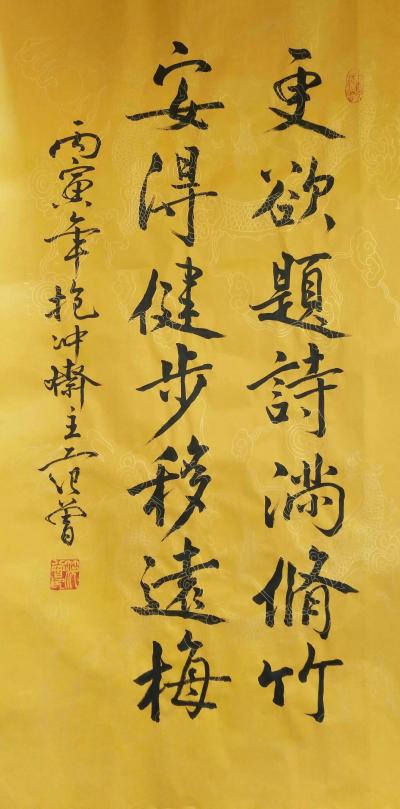 更欲題詩滿脩竹
安得健步移遠梅
丙寅年抱冲齋主范曾